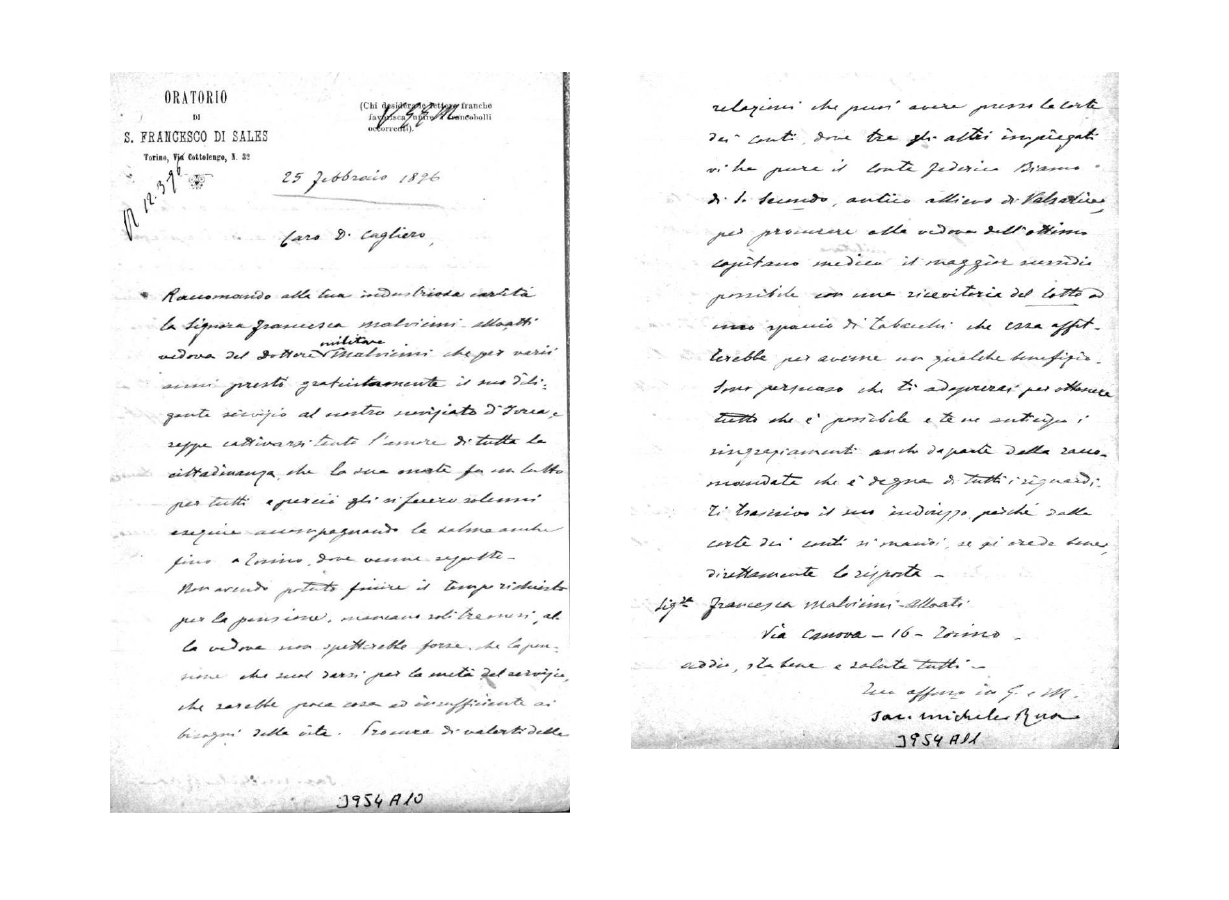 ORATORIO
DI
S. FRANCESCO DI SALES
Torino, Via Cottolengo, N. 32
(Chi desidera lettere franche
favorisca unire i francobolli
occorrenti).
12.3.96
25 febbraio 1896
Caro D. Cagliero,
Raccomando alla tua industriosa carità
la Signora Francesca Malvicini-
vedova del Dottore militare Malvicini che per varii
anni prestò gratuitamente il suo dili-
gente servizio al nostro noviziato d'Ivrea, e
seppe cattivarsi tanto l'amore di tutta la
cittadinanza, che la sua morte fu un lutto
per tutti e perciò gli si fecero solenni
esequie accompagnando la salma anche
fino a Torino, dove venne sepolto-
Non avendo potuto finire il tempo richiesto
per la pensione, mancano soli tre mesi, al-
la vedova non spetterebbe forse, che la pen-
sione che suol darsi per la metà del servizio,
che sarebbe poca cosa ed insufficiente ai
bisogni della vita. Procura di valerti delle
J954 A10
relazioni che puoi avere presso la corte
dei conti, dove tra gli altri impiegati
vi ha pure il conte Federico
di S. Secondo, antico allievo di Valsalice,
per procurare alla vedova dell'ottimo
capitano medico il maggior sussidio
possibile con una ricevitoria del lotto od
uno spaccio di tabacchi che essa affit-
terebbe per averne un qualche benefizio.
Sono persuaso che ti adoprerai per ottenere
tutto che è possibile e te ne anticipo i
ringraziamenti anche da parte della racco-
mandata che è degna di tutti i riguardi.
Ti trascrivo il suo indirizzo perché dalla
corte dei conti si mandi, se si crede bene,
direttamente la risposta -
Sig.ra Francesca Malvicini-
Via Canova - 16 - Torino -
addio, sta bene e saluta tutti -
Tuo affmo in G. e M.
Sac. Michele Rua
J954 A11